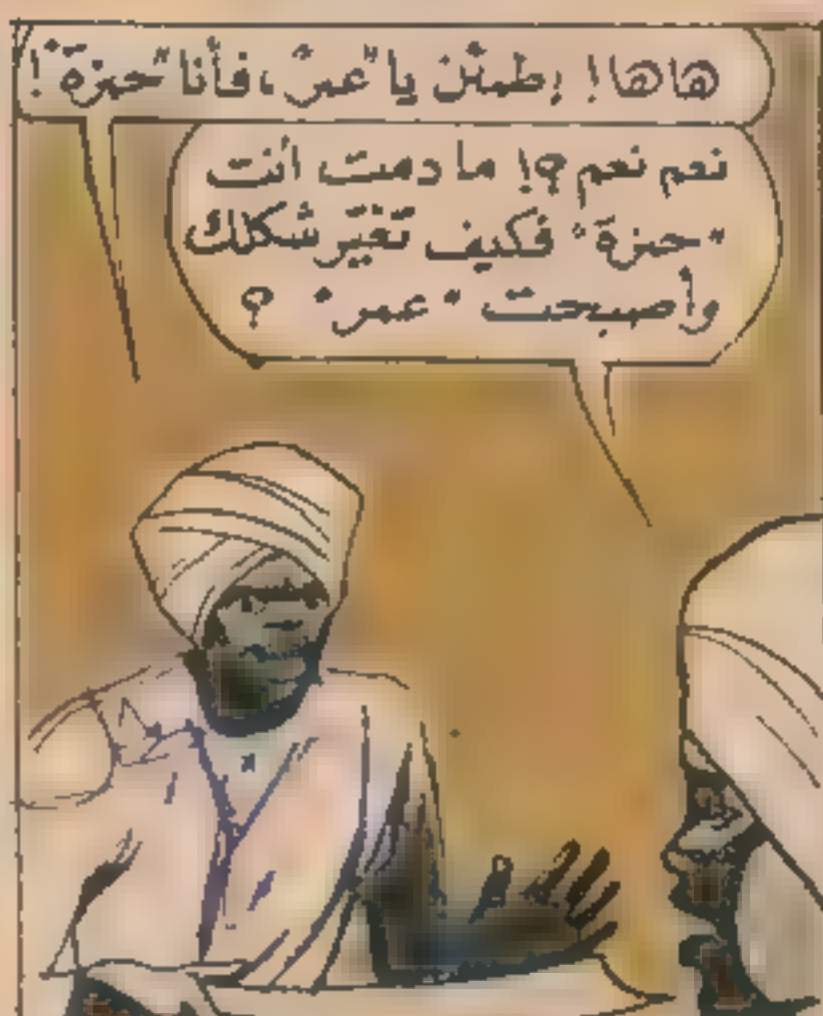 هاها! إطمئن يا "عمر"، فأنا "حمزة"!
نعم نعم؟! ما دمت أنت
"حمزة" فكيف تغيّر شكلك
وأصبحت "عمر" ؟